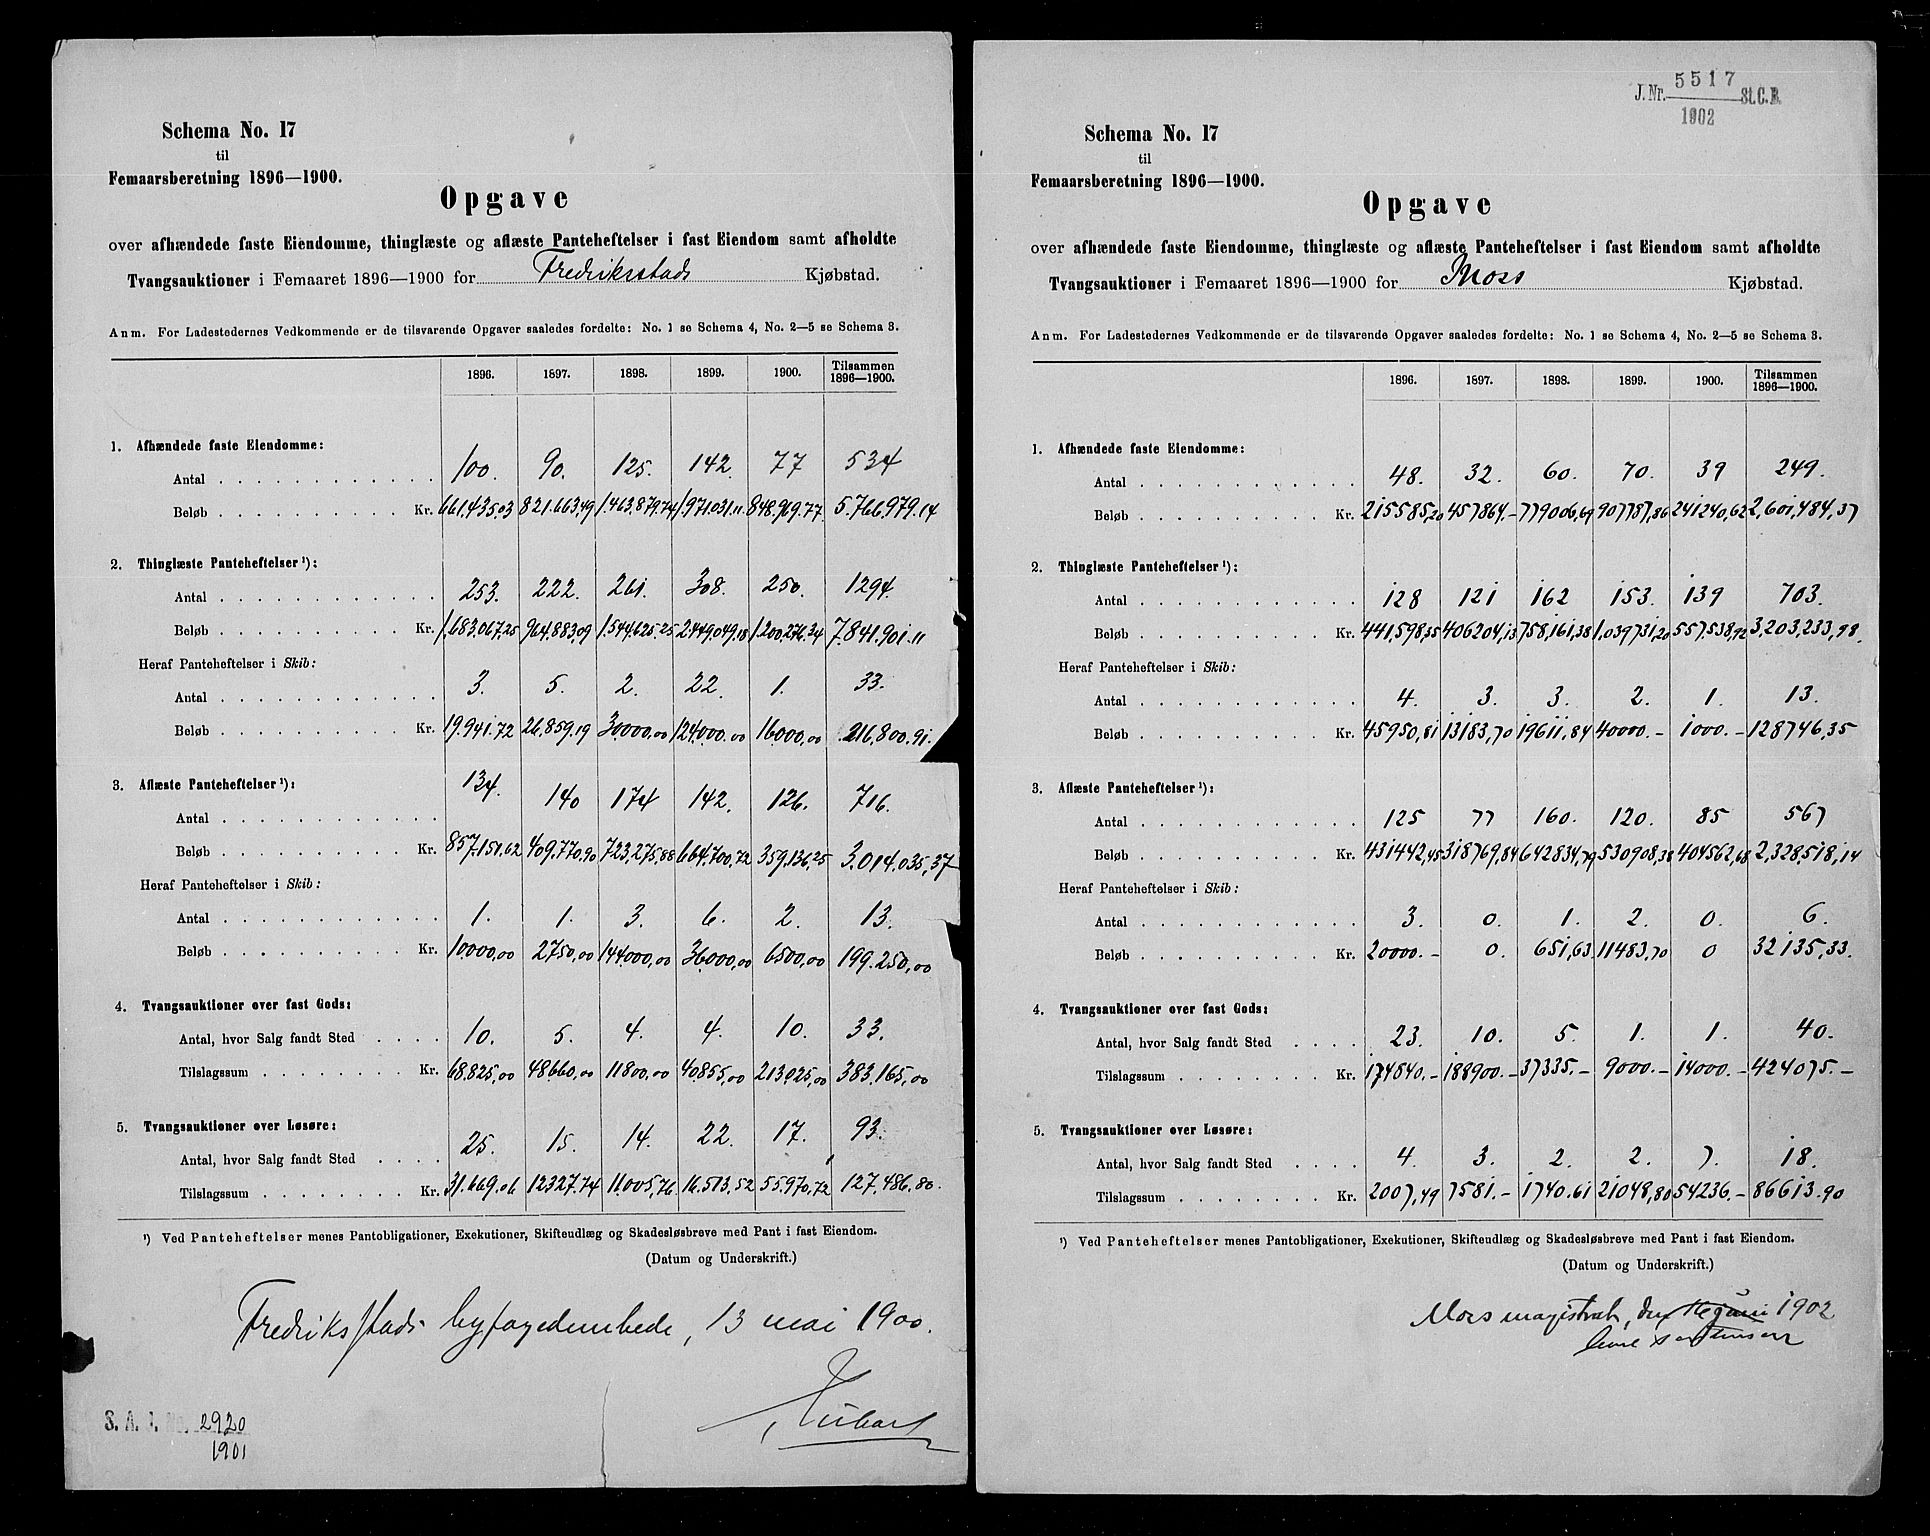 Schema No. 17
til
Femaarsberetning 1896—1900.
Opgave
over afhændede faste Eiendomme, thinglæste og aflæste Panteheftelser i fast Eiendom samt afholdte
Tvangsauktioner i Femaaret 1896—1900 for Fredriksstads Kjøbstad.
Anm. For Ladestedernes Vedkommende er de tilsvarende Opgaver saaledes fordelte: No. 1 se Schema 4, No. 2—5 se Schema 3.
1896. 1897. 1898. 1899. 1900. Tilsammen 1896—1900.
1. Afhændede faste Eiendomme:
Antal 100. 90. 125. 142. 77 534
Beløb Kr. 661,435.03 821.663,49 1.463.879.74 1.971.031.11 848.969.77. 5.766,979.14
2. Thinglæste Panteheftelser ¹):
Antal 253. 222. 261. 308. 250. 1294.
Beløb Kr. 1,683.067,25 964.883,09 1.544.625.25 2449.049.18 1.200.276.34 7.841.901.11
Heraf Panteheftelser i Skib:
Antal 3. 5. 2. 22. 1. 33.
Beløb Kr. 19.941.72 26.859.19 30000,00 124000.00 16000,00 216,800.91.
3. Aflæste Panteheftelser ¹):
Antal 134. 140 174 142. 126. 716.
Beløb Kr. 857.151.62 409.770.90 723,275,88 664.700,72 359,136,25 3.014.035,37
Heraf Panteheftelser i Skib:
Antal 1. 1. 3. 6. 2. 13.
Beløb Kr. 10000,00 2750,00 144000,00 36000,00 6500,00 199.250,00
4. Tvangsauktioner over fast Gods:
Antal, hvor Salg fandt Sted 10. 5. 4. 4. 10. 33.
Tilslagssum Kr. 68.825,00 48660,00 11800,00 40855,00 213025,00 383.165,00
5. Tvangsauktioner over Løsøre:
Antal, hvor Salg fandt Sted 25. 15. 14. 22. 17. 93.
Tilslagssum Kr. 31.669.06 12327.74 11.005,76 16.513,52 55.970,72 127.486.80.
¹) Ved Panteheftelser menes Pantobligationer, Exekutioner, Skifteudlæg og Skadesløsbreve med Pant i fast Eiendom.
(Datum og Underskrift.)
Fredriksstads byfogedembede, 13 mai 1900.
S. A. J. No. 2920
1901
J. Nr. 5517 St. C. B.
1902
Schema No. 17
til
Femaarsberetning 1896—1900.
Opgave
over afhændede faste Eiendomme, thinglæste og aflæste Panteheftelser i fast Eiendom samt afholdte
Tvangsauktioner i Femaaret 1896—1900 for Moss Kjøbstad.
Anm. For Ladestedernes Vedkommende er de tilsvarende Opgaver saaledes fordelte: No. 1 se Schema 4, No. 2—5 se Schema 3.
1896. 1897. 1898. 1899. 1900. Tilsammen 1896—1900.
1. Afhændede faste Eiendomme:
Antal 48. 32. 60. 70. 39 249.
Beløb Kr. 215585,20 457864,— 779006,69 907787,86 241240,62 2,601,484,37
2. Thinglæste Panteheftelser ¹):
Antal 128 121 162 153. 139 703.
Beløb Kr. 441,598,35 406204,13 758,161,38 1,039731,20 557,538,92 3,203,233,98.
Heraf Panteheftelser i Skib:
Antal 4. 3. 3. 2. 1. 13.
Beløb Kr. 45950,81 13183,70 19611,84 40000.— 1000.— 128746,35
3. Aflæste Panteheftelser ¹):
Antal 125 77 160. 120. 85 567
Beløb Kr. 431442,45 318769,84 642834,79 530908,38 404562,68 2,328,518,14
Heraf Panteheftelser i Skib:
Antal 3. 0. 1. 2. 0. 6.
Beløb Kr. 20000.— 0. 651,63 11483,70 0 32135,33.
4. Tvangsauktioner over fast Gods:
Antal, hvor Salg fandt Sted 23. 10. 5. 1. 1. 40.
Tilslagssum Kr. 174840.— 188900.— 37335.— 9000.— 14000.— 424075.—
5. Tvangsauktioner over Løsøre:
Antal, hvor Salg fandt Sted 4. 3. 2. 2. 7. 18.
Tilslagssum Kr. 2007,49 7581.— 1740.61 21048,80 54236.— 86613.90
¹) Ved Panteheftelser menes Pantobligationer, Exekutioner, Skifteudlæg og Skadesløsbreve med Pant i fast Eiendom.
(Datum og Underskrift.)
Moss magistrat, den juni 1902